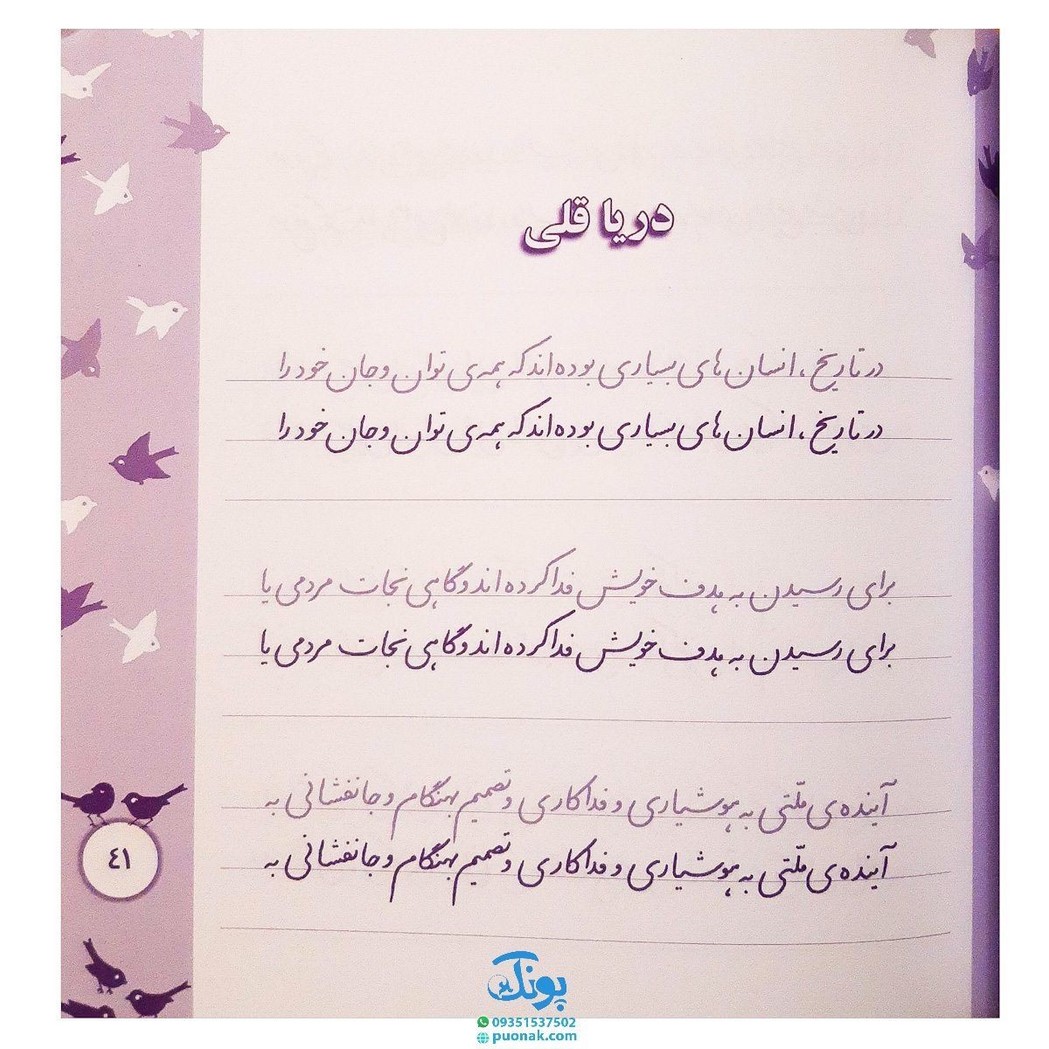 دریا قلی
در تاریخ ، انسان های بسیاری بوده اند که همه ی توان و جان خود را
در تاریخ ، انسان های بسیاری بوده اند که همه ی توان و جان خود را
برای رسیدن به هدف خویش فدا کرده اند و گاهی نجات مردمی یا
برای رسیدن به هدف خویش فدا کرده اند و گاهی نجات مردمی یا
آینده ی ملّتی به هوشیاری و فداکاری و تصمیم بهنگام و جانفشانی به
آینده ی ملّتی به هوشیاری و فداکاری و تصمیم بهنگام و جانفشانی به
٤١
پونک
09351537502
puonak.com